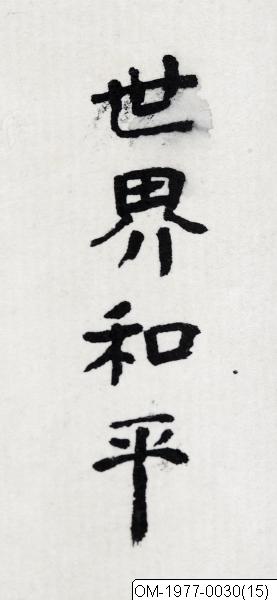 世界和平
OM-1977-0030(15)